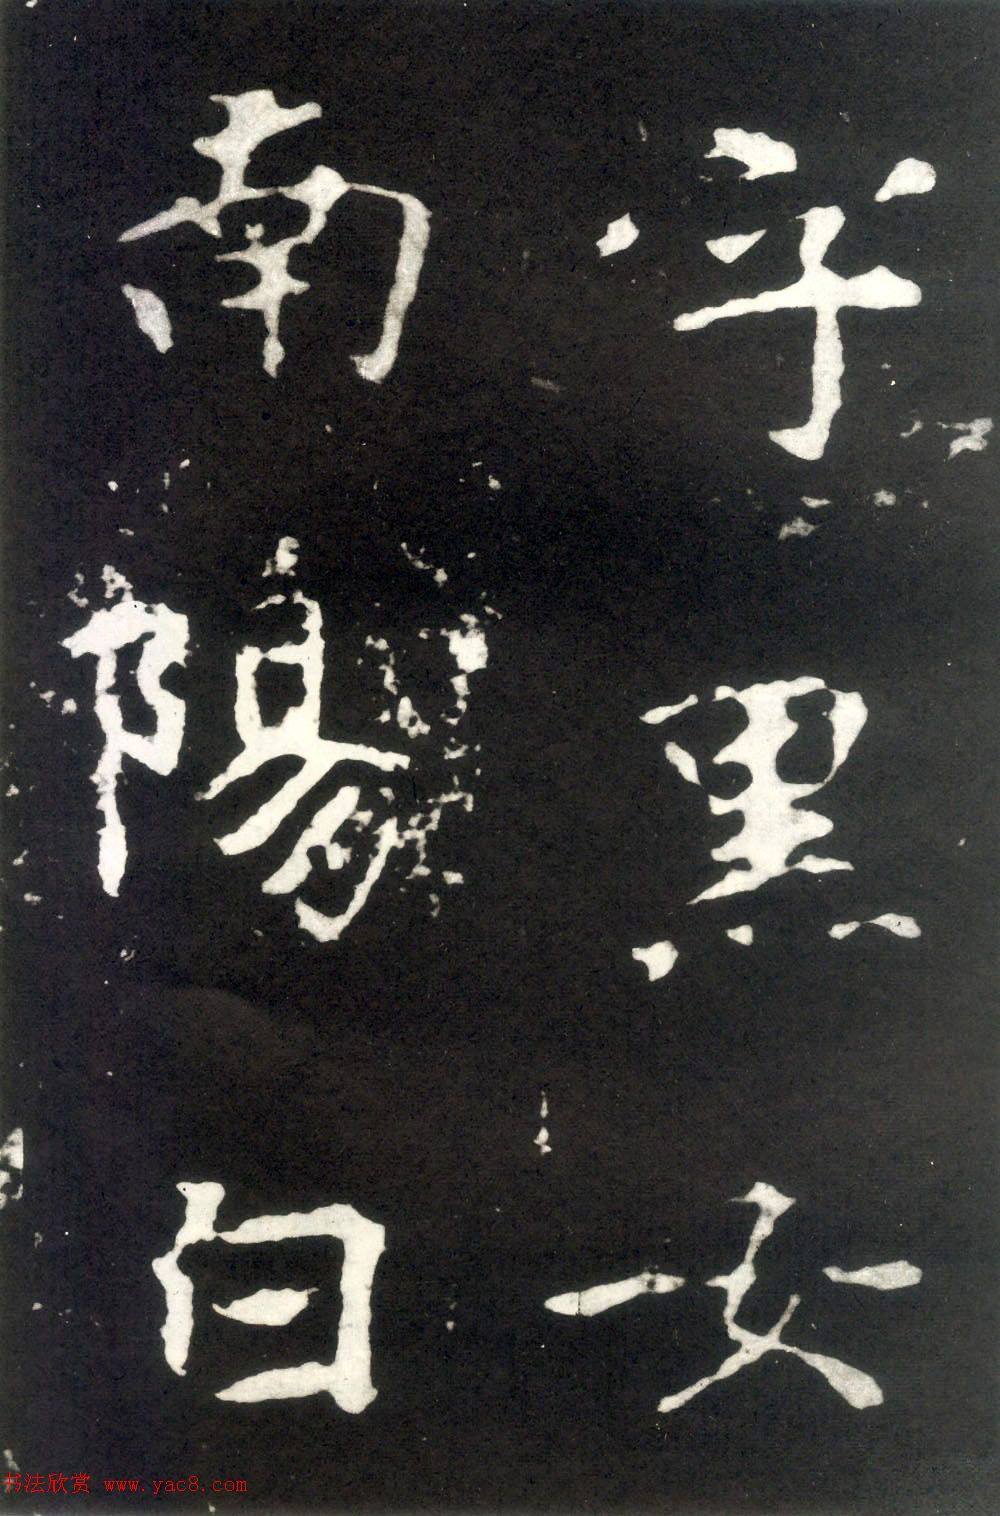 字黑女
南陽白
书法欣赏 www.yac8.com